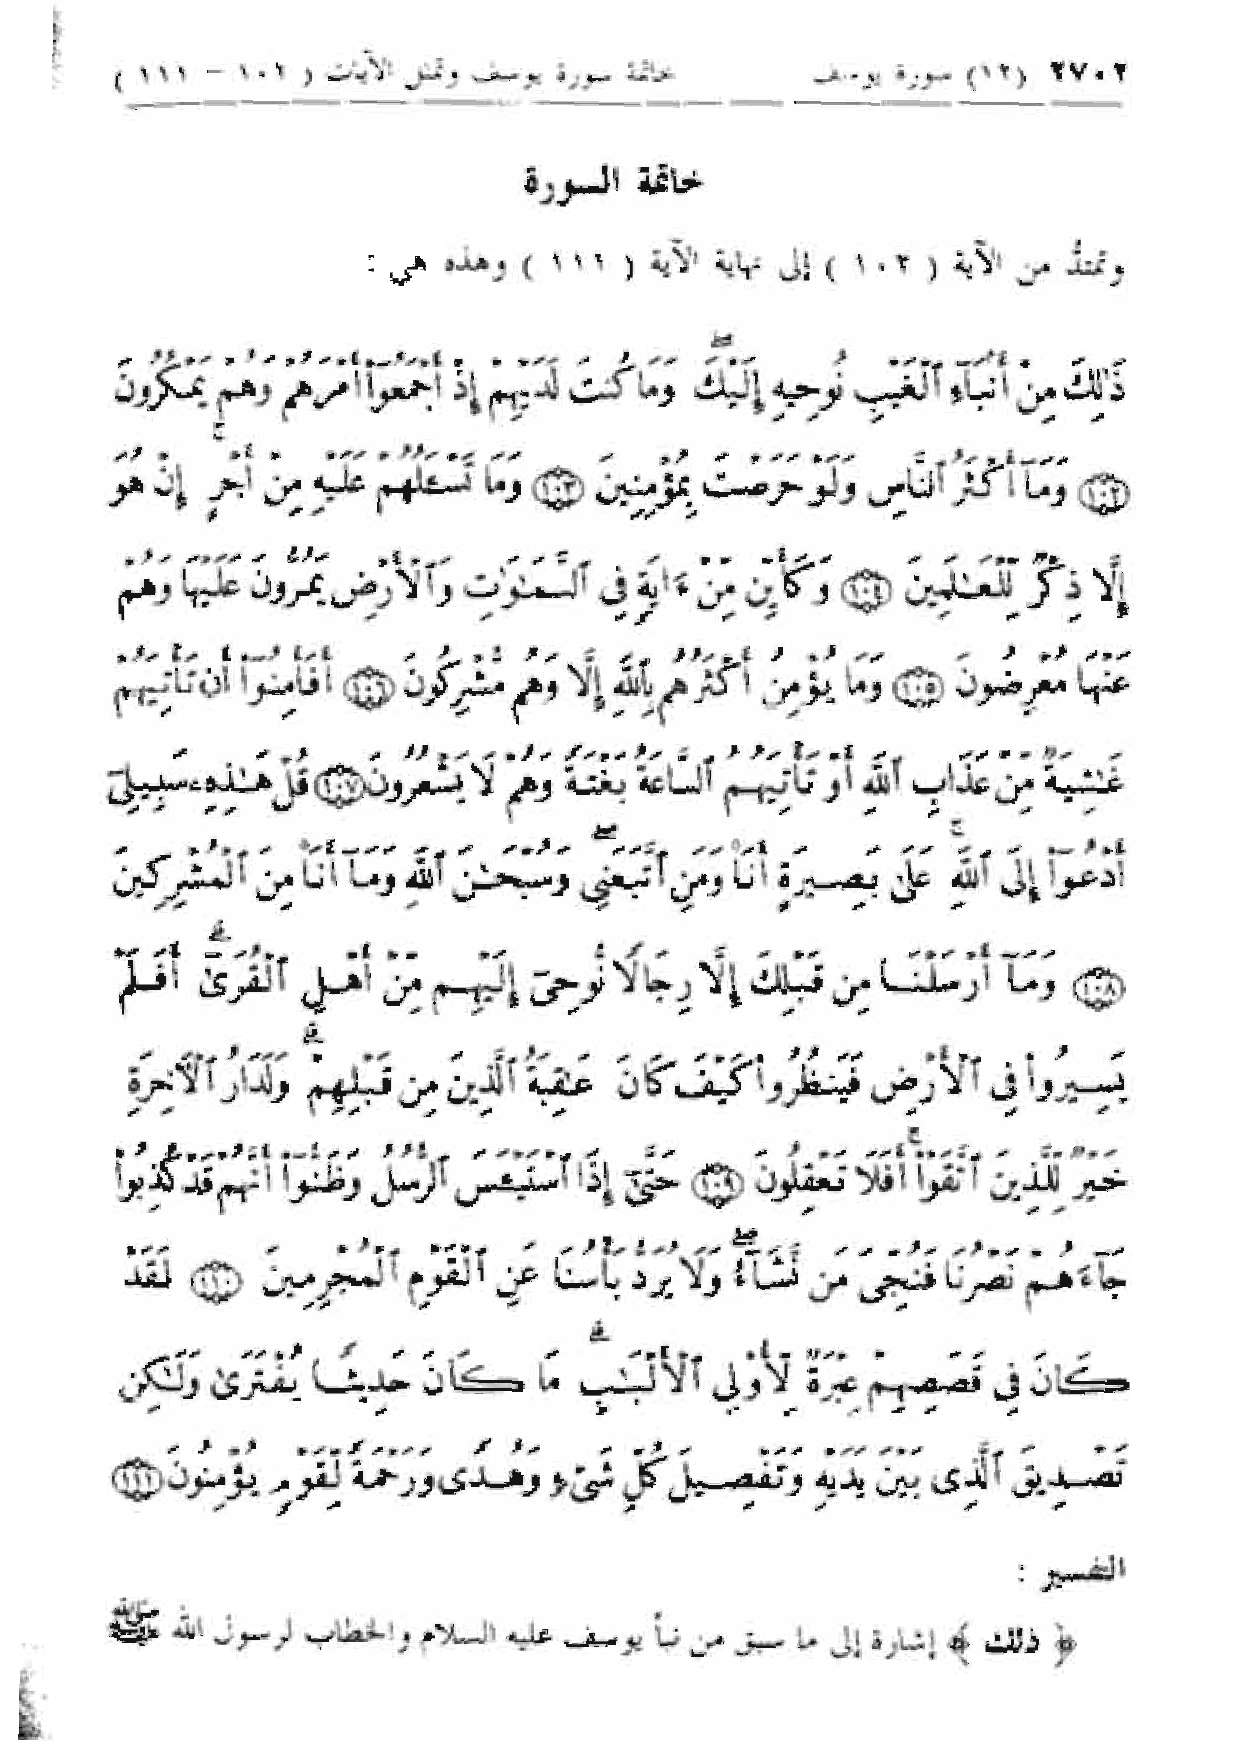 ٢٧٠٢ (١٢) سورة يوسف خاتمة سورة يوسف وتمثل الآيات ( ١٠٢ – ١١١ )
خاتمة السورة
وتمتدُّ من الآية ( ١٠٢ ) إلى نهاية الآية ( ١١١ ) وهذه هي :
ذَٰلِكَ مِنْ أَنۢبَآءِ ٱلْغَيْبِ نُوحِيهِ إِلَيْكَ ۖ وَمَا كُنتَ لَدَيْهِمْ إِذْ أَجْمَعُوٓا۟ أَمْرَهُمْ وَهُمْ يَمْكُرُونَ
﴿١٠٢﴾ وَمَآ أَكْثَرُ ٱلنَّاسِ وَلَوْ حَرَصْتَ بِمُؤْمِنِينَ ﴿١٠٣﴾ وَمَا تَسْـَٔلُهُمْ عَلَيْهِ مِنْ أَجْرٍ ۚ إِنْ هُوَ
إِلَّا ذِكْرٌ لِّلْعَـٰلَمِينَ ﴿١٠٤﴾ وَكَأَيِّن مِّنْ ءَايَةٍ فِى ٱلسَّمَـٰوَٰتِ وَٱلْأَرْضِ يَمُرُّونَ عَلَيْهَا وَهُمْ
عَنْهَا مُعْرِضُونَ ﴿١٠٥﴾ وَمَا يُؤْمِنُ أَكْثَرُهُم بِٱللَّهِ إِلَّا وَهُم مُّشْرِكُونَ ﴿١٠٦﴾ أَفَأَمِنُوٓا۟ أَن تَأْتِيَهُمْ
غَـٰشِيَةٌ مِّنْ عَذَابِ ٱللَّهِ أَوْ تَأْتِيَهُمُ ٱلسَّاعَةُ بَغْتَةً وَهُمْ لَا يَشْعُرُونَ ﴿١٠٧﴾ قُلْ هَـٰذِهِۦ سَبِيلِىٓ
أَدْعُوٓا۟ إِلَى ٱللَّهِ ۚ عَلَىٰ بَصِيرَةٍ أَنَا۠ وَمَنِ ٱتَّبَعَنِى ۖ وَسُبْحَـٰنَ ٱللَّهِ وَمَآ أَنَا۠ مِنَ ٱلْمُشْرِكِينَ
﴿١٠٨﴾ وَمَآ أَرْسَلْنَا مِن قَبْلِكَ إِلَّا رِجَالًا نُّوحِىٓ إِلَيْهِم مِّنْ أَهْلِ ٱلْقُرَىٰٓ ۗ أَفَلَمْ
يَسِيرُوا۟ فِى ٱلْأَرْضِ فَيَنظُرُوا۟ كَيْفَ كَانَ عَـٰقِبَةُ ٱلَّذِينَ مِن قَبْلِهِمْ ۗ وَلَدَارُ ٱلْـَٔاخِرَةِ
خَيْرٌ لِّلَّذِينَ ٱتَّقَوْا۟ ۚ أَفَلَا تَعْقِلُونَ ﴿١٠٩﴾ حَتَّىٰٓ إِذَا ٱسْتَيْـَٔسَ ٱلرُّسُلُ وَظَنُّوٓا۟ أَنَّهُمْ قَدْ كُذِبُوا۟
جَآءَهُمْ نَصْرُنَا فَنُجِّىَ مَن نَّشَآءُ ۖ وَلَا يُرَدُّ بَأْسُنَا عَنِ ٱلْقَوْمِ ٱلْمُجْرِمِينَ ﴿١١٠﴾ لَقَدْ
كَانَ فِى قَصَصِهِمْ عِبْرَةٌ لِّأُو۟لِى ٱلْأَلْبَـٰبِ ۗ مَا كَانَ حَدِيثًا يُفْتَرَىٰ وَلَـٰكِن
تَصْدِيقَ ٱلَّذِى بَيْنَ يَدَيْهِ وَتَفْصِيلَ كُلِّ شَىْءٍ وَهُدًى وَرَحْمَةً لِّقَوْمٍ يُؤْمِنُونَ ﴿١١١﴾
التفسير :
﴿ ذلك ﴾ إشارة إلى ما سبق من نبأ يوسف عليه السلام والخطاب لرسول الله ﷺ